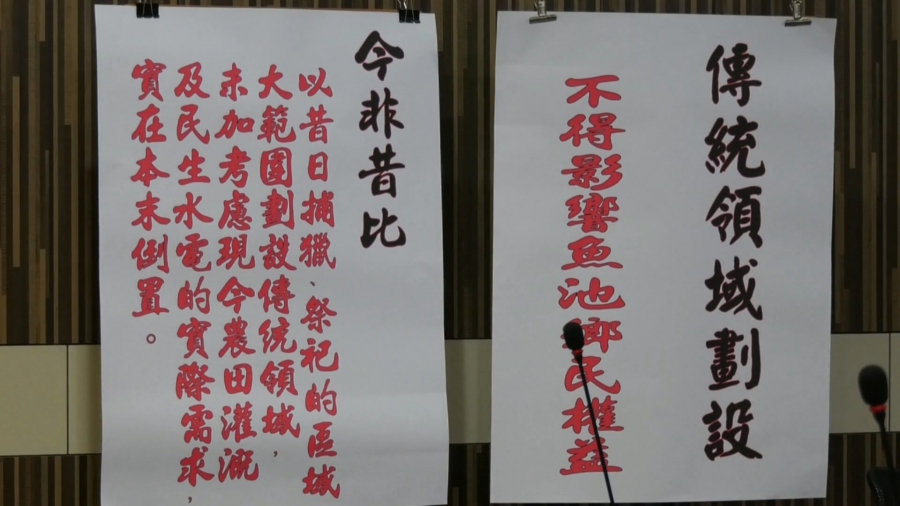 傳統領域劃設
不得影響魚池鄉民權益
今非昔比
以昔日捕獵、祭祀的區域
大範圍劃設傳統領域，
未加考慮現今農田灌溉
及民生水電的實際需求，
實在本末倒置。